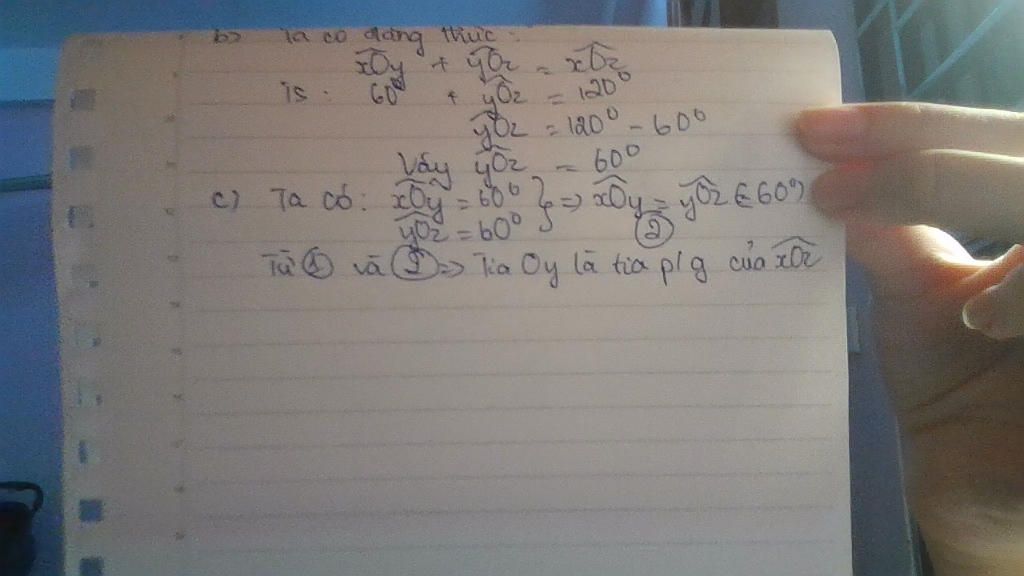 b) Ta có đẳng thức:
xOy + yOz = xOz
TS: 60⁰ + yOz = 120⁰
yOz = 120⁰ - 60⁰
Vậy yOz = 60⁰
c) Ta có: xOy = 60⁰ } => xOy = yOz (= 60⁰)
yOz = 60⁰ ②
Từ ① và ② => Tia Oy là tia p/g của xOz